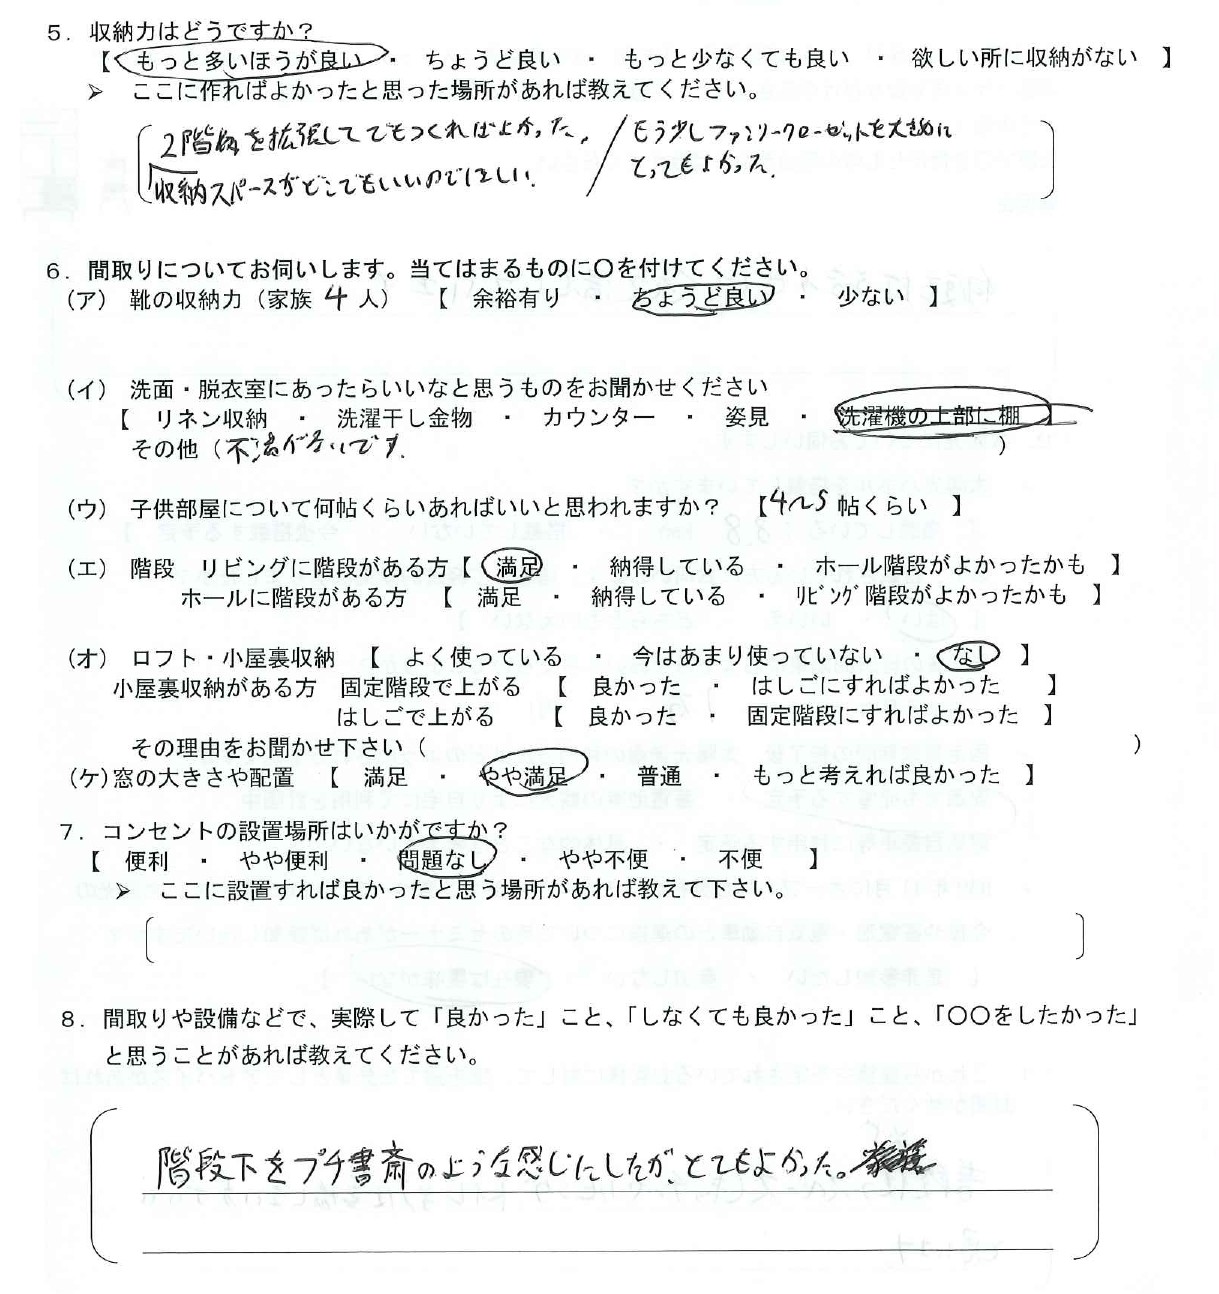 ５．収納力はどうですか？
【 もっと多いほうが良い ・ ちょうど良い ・ もっと少なくても良い ・ 欲しい所に収納がない 】
➢ ここに作ればよかったと思った場所があれば教えてください。
2階板を拡張してでもつくればよかった。/もう少しファミリークローゼットを大きめに
収納スペースがどこでもいいのでほしい。 とってもよかった。
６．間取りについてお伺いします。当てはまるものに○を付けてください。
（ア） 靴の収納力（家族 4 人） 【 余裕有り ・ ちょうど良い ・ 少ない 】
（イ） 洗面・脱衣室にあったらいいなと思うものをお聞かせください
【 リネン収納 ・ 洗濯干し金物 ・ カウンター ・ 姿見 ・ 洗濯機の上部に棚 】
その他（不満がないです. ）
（ウ） 子供部屋について何帖くらいあればいいと思われますか？ 【4〜5帖くらい 】
（エ） 階段 リビングに階段がある方【 満足 ・ 納得している ・ ホール階段がよかったかも 】
ホールに階段がある方 【 満足 ・ 納得している ・ ﾘﾋﾞﾝｸﾞ階段がよかったかも 】
（オ） ロフト・小屋裏収納 【 よく使っている ・ 今はあまり使っていない ・ なし 】
小屋裏収納がある方 固定階段で上がる 【 良かった ・ はしごにすればよかった 】
はしごで上がる 【 良かった ・ 固定階段にすればよかった 】
その理由をお聞かせ下さい（ ）
（ケ）窓の大きさや配置 【 満足 ・ やや満足 ・ 普通 ・ もっと考えれば良かった 】
７．コンセントの設置場所はいかがですか？
【 便利 ・ やや便利 ・ 問題なし ・ やや不便 ・ 不便 】
➢ ここに設置すれば良かったと思う場所があれば教えて下さい。
８．間取りや設備などで、実際して「良かった」こと、「しなくても良かった」こと、「○○をしたかった」
と思うことがあれば教えてください。
階段下をプチ書斎のような感じにしたが、とてもよかった。